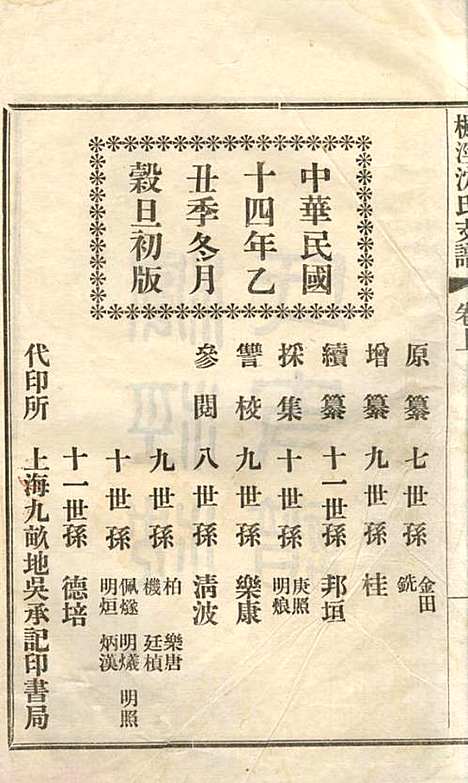 沈氏支譜
中華民國
十四年乙
丑季冬月
穀旦初版
原纂 七世孫 金田 銑
增纂 九世孫 桂
續纂 十一世孫 邦垣
採集 十世孫 庚照 明烺
讐校 九世孫 樂康
參閱 八世孫 清波
九世孫 柏 樂唐 機 廷楨
十世孫 佩燧 明爔 明照 明烜 炳漢
十一世孫 德培
代印所 上海九畝地吳承記印書局